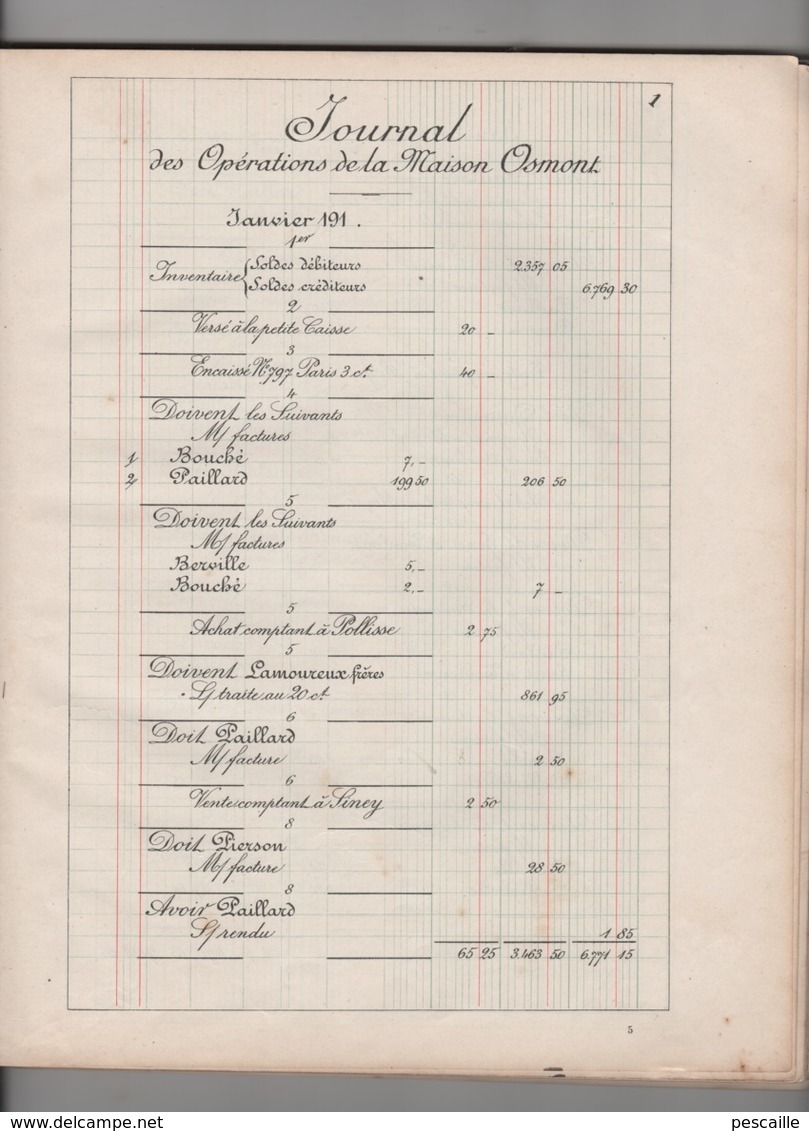 1
Journal
des Opérations de la Maison Osmont
Janvier 191 .
1er
Inventaire { Soldes débiteurs 2.357 05
Soldes créditeurs 6.769 30
2
Versé à la petite Caisse 20 –
3
Encaissé No 797 Paris 3 ct 40 –
4
Doivent les Suivants
M/ factures
1 Bouché 7,–
2 Paillard 199 50 206 50
5
Doivent les Suivants
M/ factures
Berville 5,–
Bouché 2,– 7 –
5
Achat comptant à Pollisse 2 75
5
Doivent Lamoureux frères
S/ traite au 20 ct 861 95
6
Doit Paillard
M/ facture 2 50
6
Vente comptant à Siney 2 50
8
Doit Pierson
M/ facture 28 50
8
Avoir Paillard
S/ rendu 1 85
65 25 3.463 50 6.771 15
5
pescaille